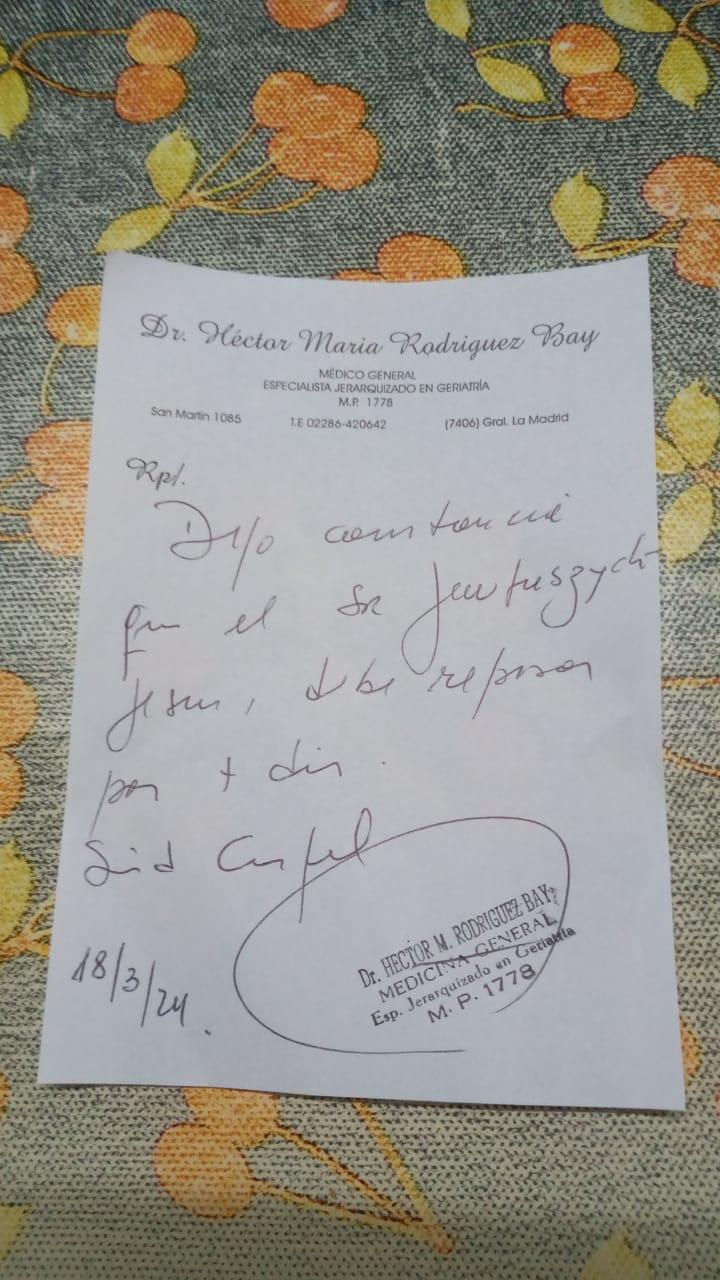 Dr. Héctor Maria Rodriguez Bay
MÉDICO GENERAL
ESPECIALISTA JERARQUIZADO EN GERIATRÍA
M.P. 1778
San Martín 1085 T.E 02286-420642 (7406) Gral. La Madrid
Rp/.
Dejo constancia
que el Sr
Jesus, debe reposar
por
18/3/24.
Dr. HECTOR M. RODRIGUEZ BAY
MEDICINA GENERAL
Esp. Jerarquizado en Geriatria
M. P. 1778